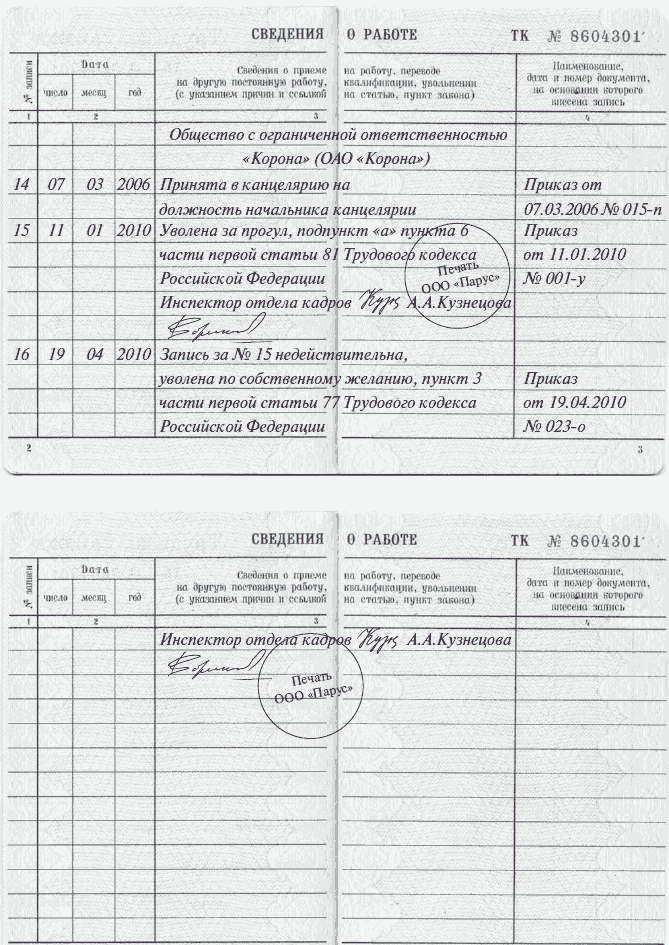 СВЕДЕНИЯ О РАБОТЕ ТК № 8604301
№ записи Дата Сведения о приеме на работу, переводе Наименование,
число месяц год на другую постоянную работу, квалификации, увольнении дата и номер документа,
(с указанием причин и ссылкой на статью, пункт закона) на основании которого
внесена запись
1 2 3 4
Общество с ограниченной ответственностью
«Корона» (ОАО «Корона»)
14 07 03 2006 Принята в канцелярию на Приказ от
должность начальника канцелярии 07.03.2006 № 015-п
15 11 01 2010 Уволена за прогул, подпункт «а» пункта 6 Приказ
части первой статьи 81 Трудового кодекса от 11.01.2010
Российской Федерации № 001-у
Печать
ООО «Парус»
Инспектор отдела кадров А.А.Кузнецова
16 19 04 2010 Запись за № 15 недействительна,
уволена по собственному желанию, пункт 3 Приказ
части первой статьи 77 Трудового кодекса от 19.04.2010
Российской Федерации № 023-о
2 3
СВЕДЕНИЯ О РАБОТЕ ТК № 8604301
№ записи Дата Сведения о приеме на работу, переводе Наименование,
число месяц год на другую постоянную работу, квалификации, увольнении дата и номер документа,
(с указанием причин и ссылкой на статью, пункт закона) на основании которого
внесена запись
1 2 3 4
Инспектор отдела кадров А.А.Кузнецова
Печать
ООО «Парус»